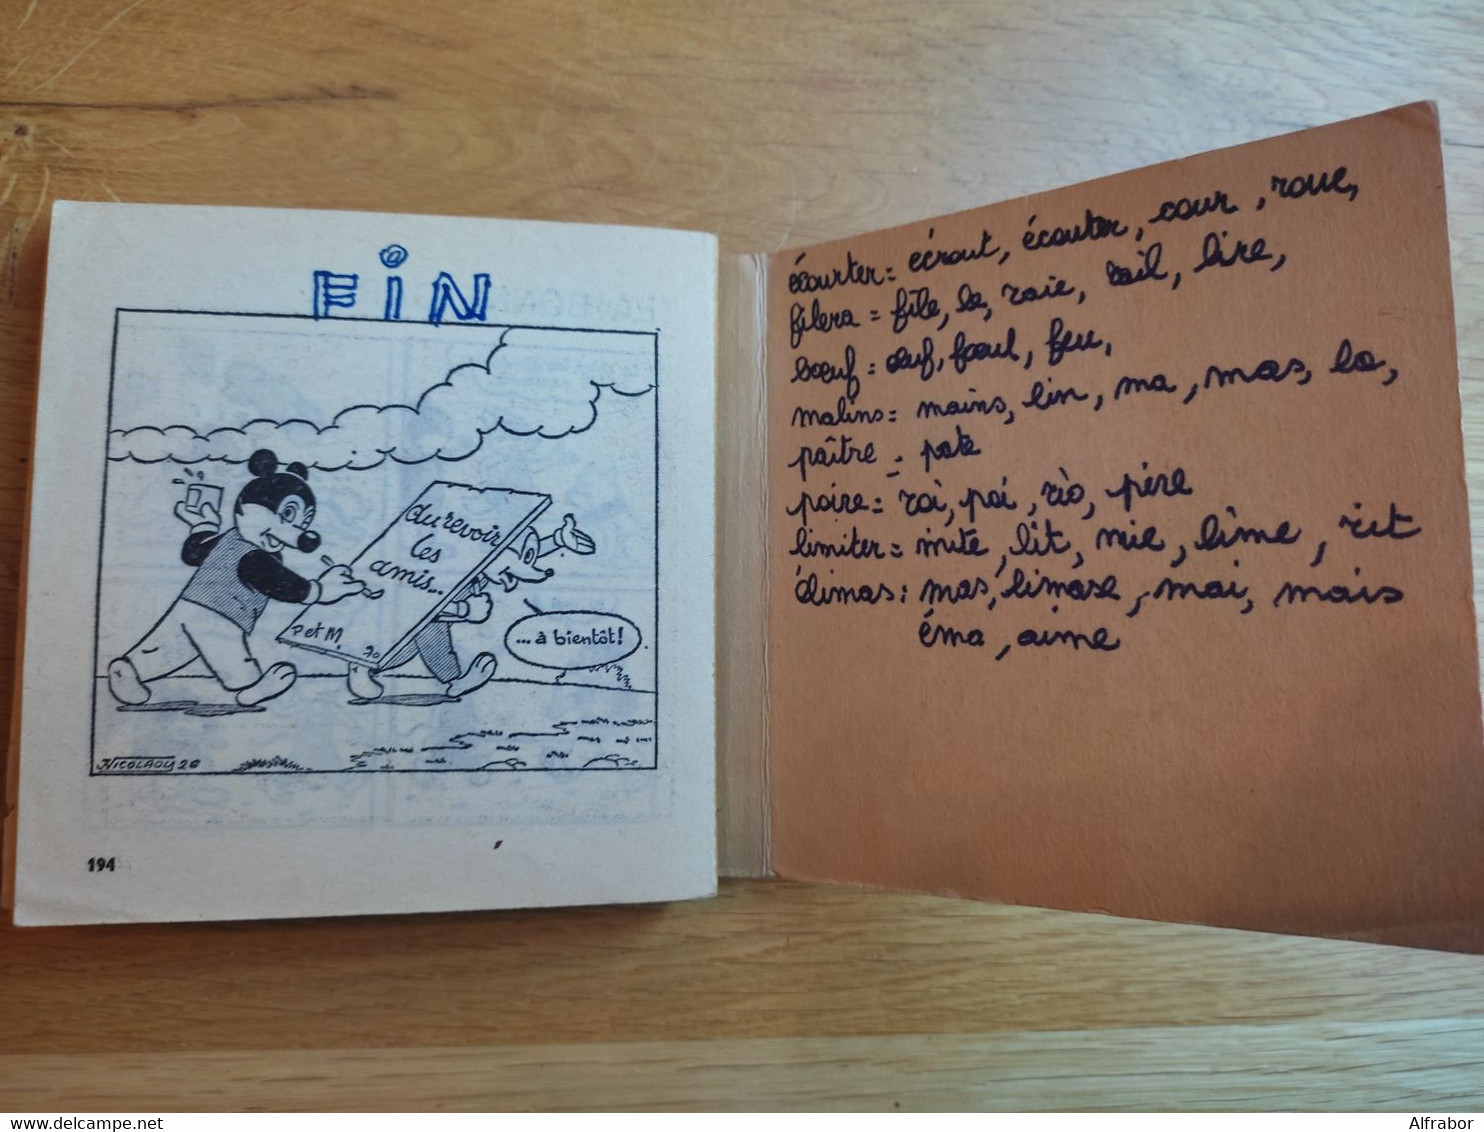 FiN
au revoir
les
amis...
P et M.
70
... à bientôt!
NICOLAOU 26
194
écourter = écrout, écouter, cour, roue,
filera = file, la, raie, ail, lire,
bœuf = œuf, feu,
malins = mains, lin, ma, mas, la,
paître = pate
poire = roi, poi, rio, père
limiter = mite, lit, mie, lime, rit
élimas: mas, limase, mai, mais
éma, aime
Alfrabor